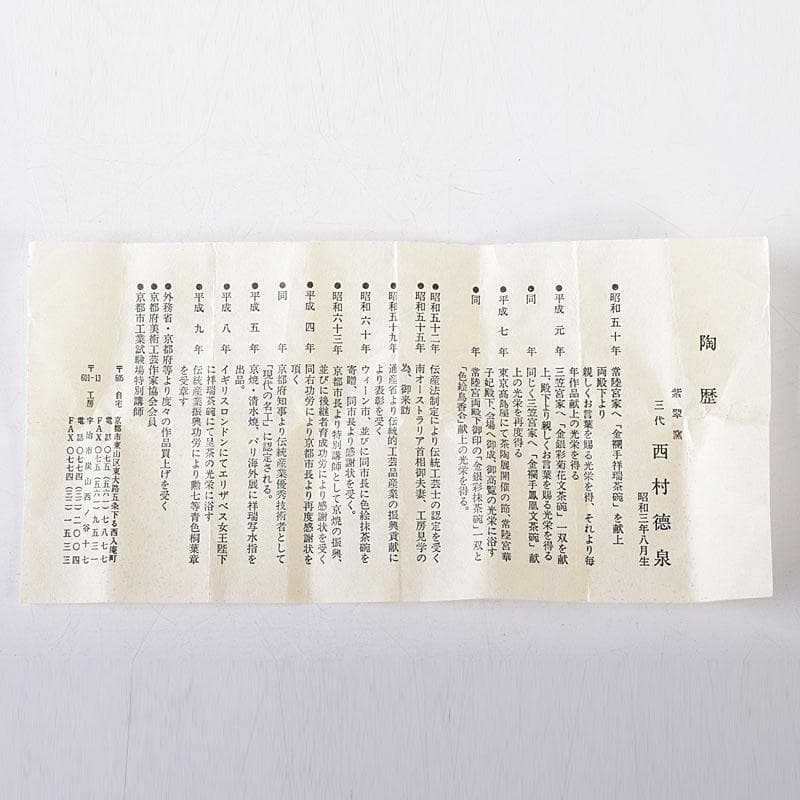 陶歴
紫翠窯
三代 西村德泉
昭和三年八月生
●昭和五十年 常陸宮家へ「金襴手祥瑞茶碗」を献上
両殿下より
親しくお言葉を賜る光栄を得、それより毎
年作品献上の光栄を得る
●平成元年 三笠宮家へ「金銀彩菊花文茶碗」一双を献
上、殿下より親しくお言葉を賜る光栄を得る
●同年 同じく三笠宮家へ「金襴手鳳凰文茶碗」献
上の光栄を再度得る
●平成七年 東京髙島屋にて茶陶展開催の節、常陸宮華
子妃殿下、会場へ御成、御高覧の光栄に浴す
●同年 常陸宮両殿下御印の「金銀彩抹茶碗」一双と
「色絵鳥香合」献上の光栄を得る。
●昭和五十二年 伝産法制定により伝統工芸士の認定を受く
●昭和五十五年 南オーストラリア首相御夫妻、工房見学の
為、御来訪
●昭和五十九年 通産省より伝統的工芸品産業の振興貢献に
より表彰を受く
●昭和六十年 ウィーン市、並びに同市長に色絵抹茶碗を
寄贈、同市長より感謝状を受く。
●昭和六十三年 京都市長より特別講師として京焼の振興、
並びに後継者育成功労により感謝状を受く
●平成四年 同右功労により京都市長より再度感謝状を
頂く
●同年 京都府知事より伝統産業優秀技術者として
「現代の名工」に認定される。
●平成五年 京焼・清水焼、パリ海外展に祥瑞写水指を
出品。
●平成八年 イギリスロンドンにてエリザベス女王陛下
に祥瑞茶碗にて呈茶の光栄に浴す
●平成九年 伝統産業振興功労により勲七等青色桐葉章
を受章す
●外務省・京都府等より度々の作品買上げを受く
●京都府美術工芸作家協会会員
●京都市工業試験場特別講師
〒605 自宅 京都市東山区東大路五条下る西入遊町
電話〇七五(五六一)七八七七
FAX〇七五(五六一)九五三一
〒601-13 工房 宇治市炭山西ノ谷十七
電話〇七七四(三二)二〇〇四
FAX〇七七四(三二)一五三三